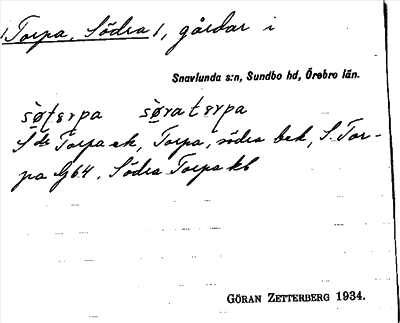 (Torpa, Södra), gårdar i
Snavlunda s:n, Sundbo hd, Örebro län.
sø̀tɛrpa sø̀ratɛrpa
S de Torpa ek, Torpa, södra bek, S. Tor-
pa G64. Södra Torpa kb
GÖRAN ZETTERBERG 1934.